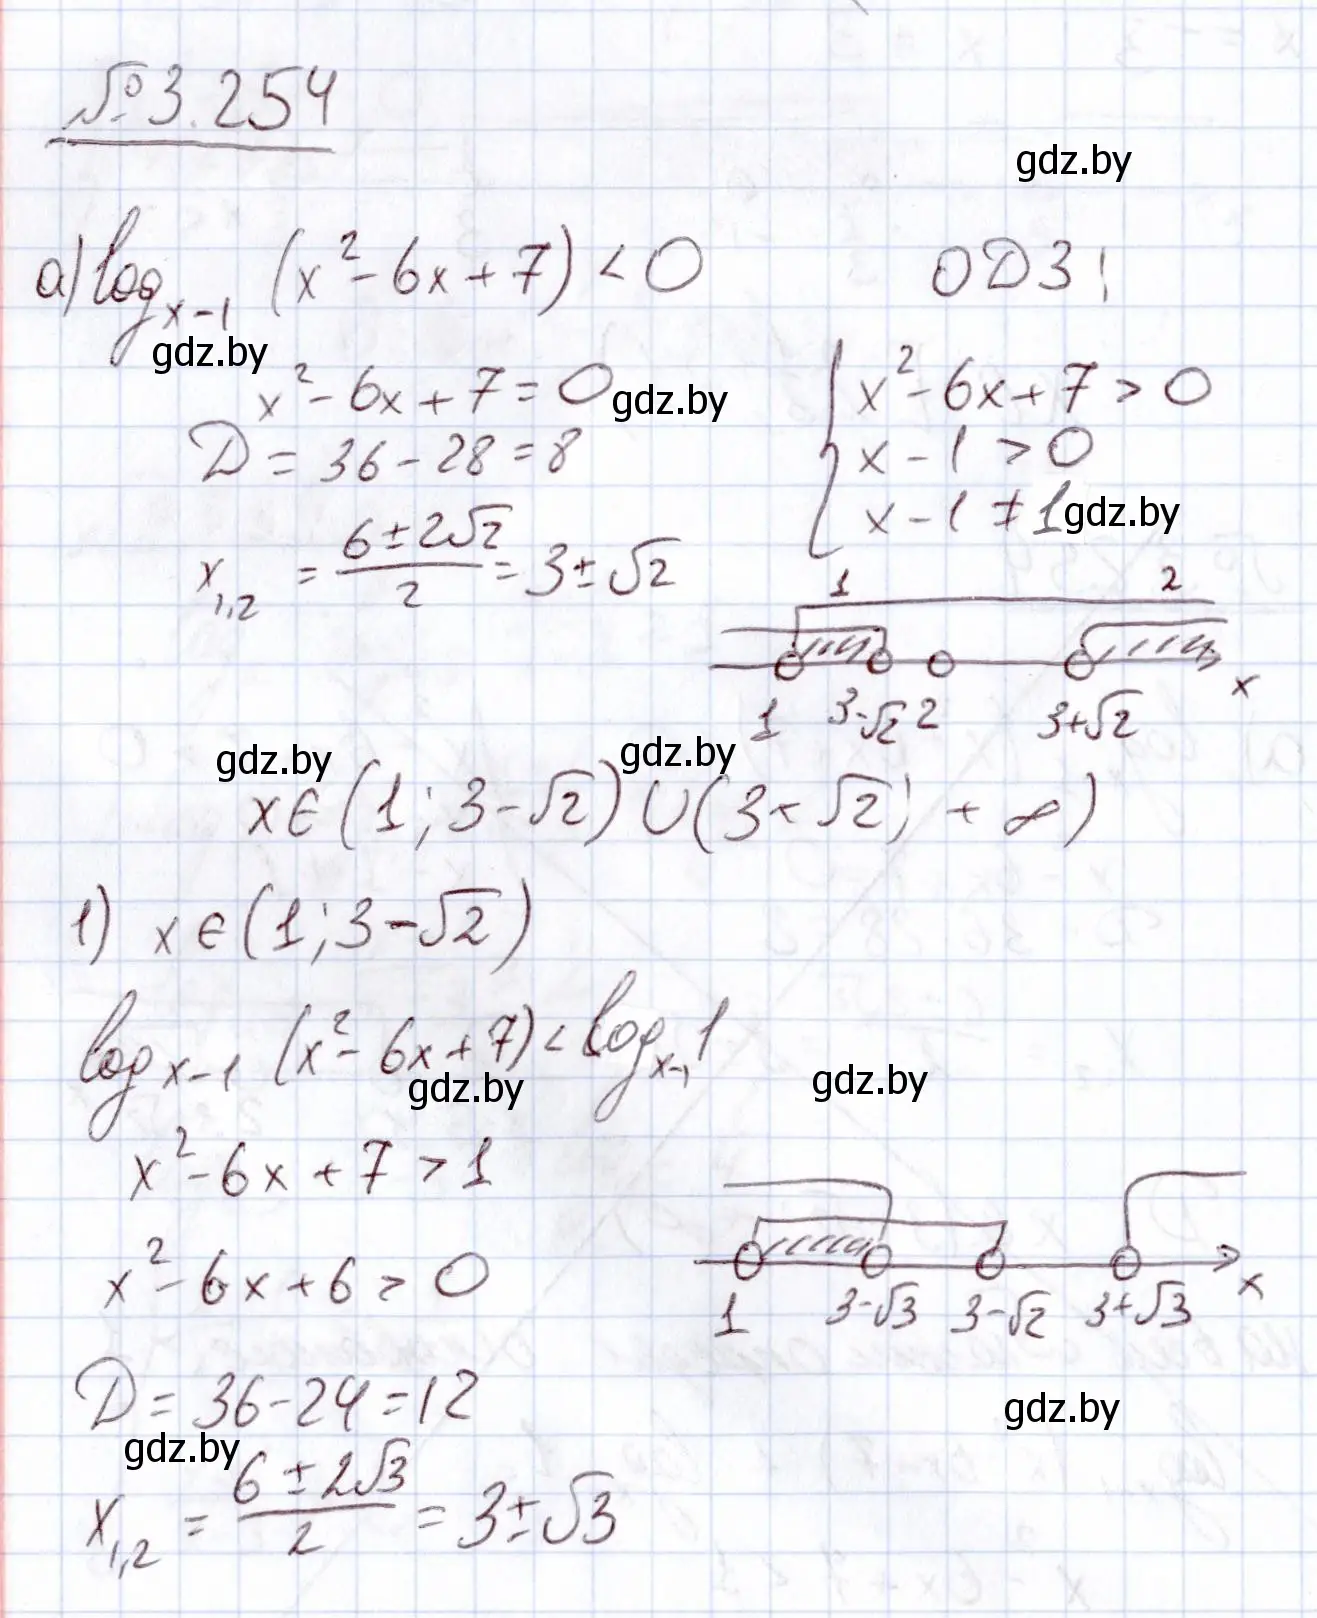 № 3.254
gdz.by
а) log_{x-1} (x² - 6x + 7) < 0
ОДЗ:
gdz.by
x² - 6x + 7 = 0
gdz.by
D = 36 - 28 = 8
x_{1,2} = \frac{6 ± 2√2}{2} = 3 ± √2
{ x² - 6x + 7 > 0
x - 1 > 0
x - 1 ≠ 1
gdz.by
1 2
1 3-√2 2 3+√2 x
gdz.by gdz.by
x ∈ (1; 3 - √2) ∪ (3 + √2; + ∞)
1) x ∈ (1; 3 - √2)
log_{x-1} (x² - 6x + 7) < log_{x-1} 1
gdz.by gdz.by
x² - 6x + 7 > 1
x² - 6x + 6 > 0
1 3-√3 3-√2 3+√3 x
D = 36 - 24 = 12
gdz.by
gdz.by
x_{1,2} = \frac{6 ± 2√3}{2} = 3 ± √3